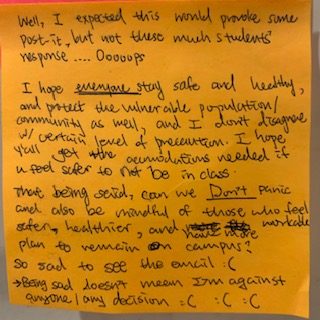 Well, I expected this would provoke some
post-it, but not these much students'
response .... Ooooups
I hope everyone stay safe and healthy,
and protect the vulnerable population/
community as well, and I don't disagree
w/ certain level of precaution. I hope
y'all get the acomodations needed if
u feel safer to not be in class.
That being said, can we Don't Panic
and also be mindful of those who feel
safer, healthier, and have more workable
plan to remain on campus?
So sad to see the email :C
→Being sad doesn't mean I'm against
anyone/any decision :C :C :C